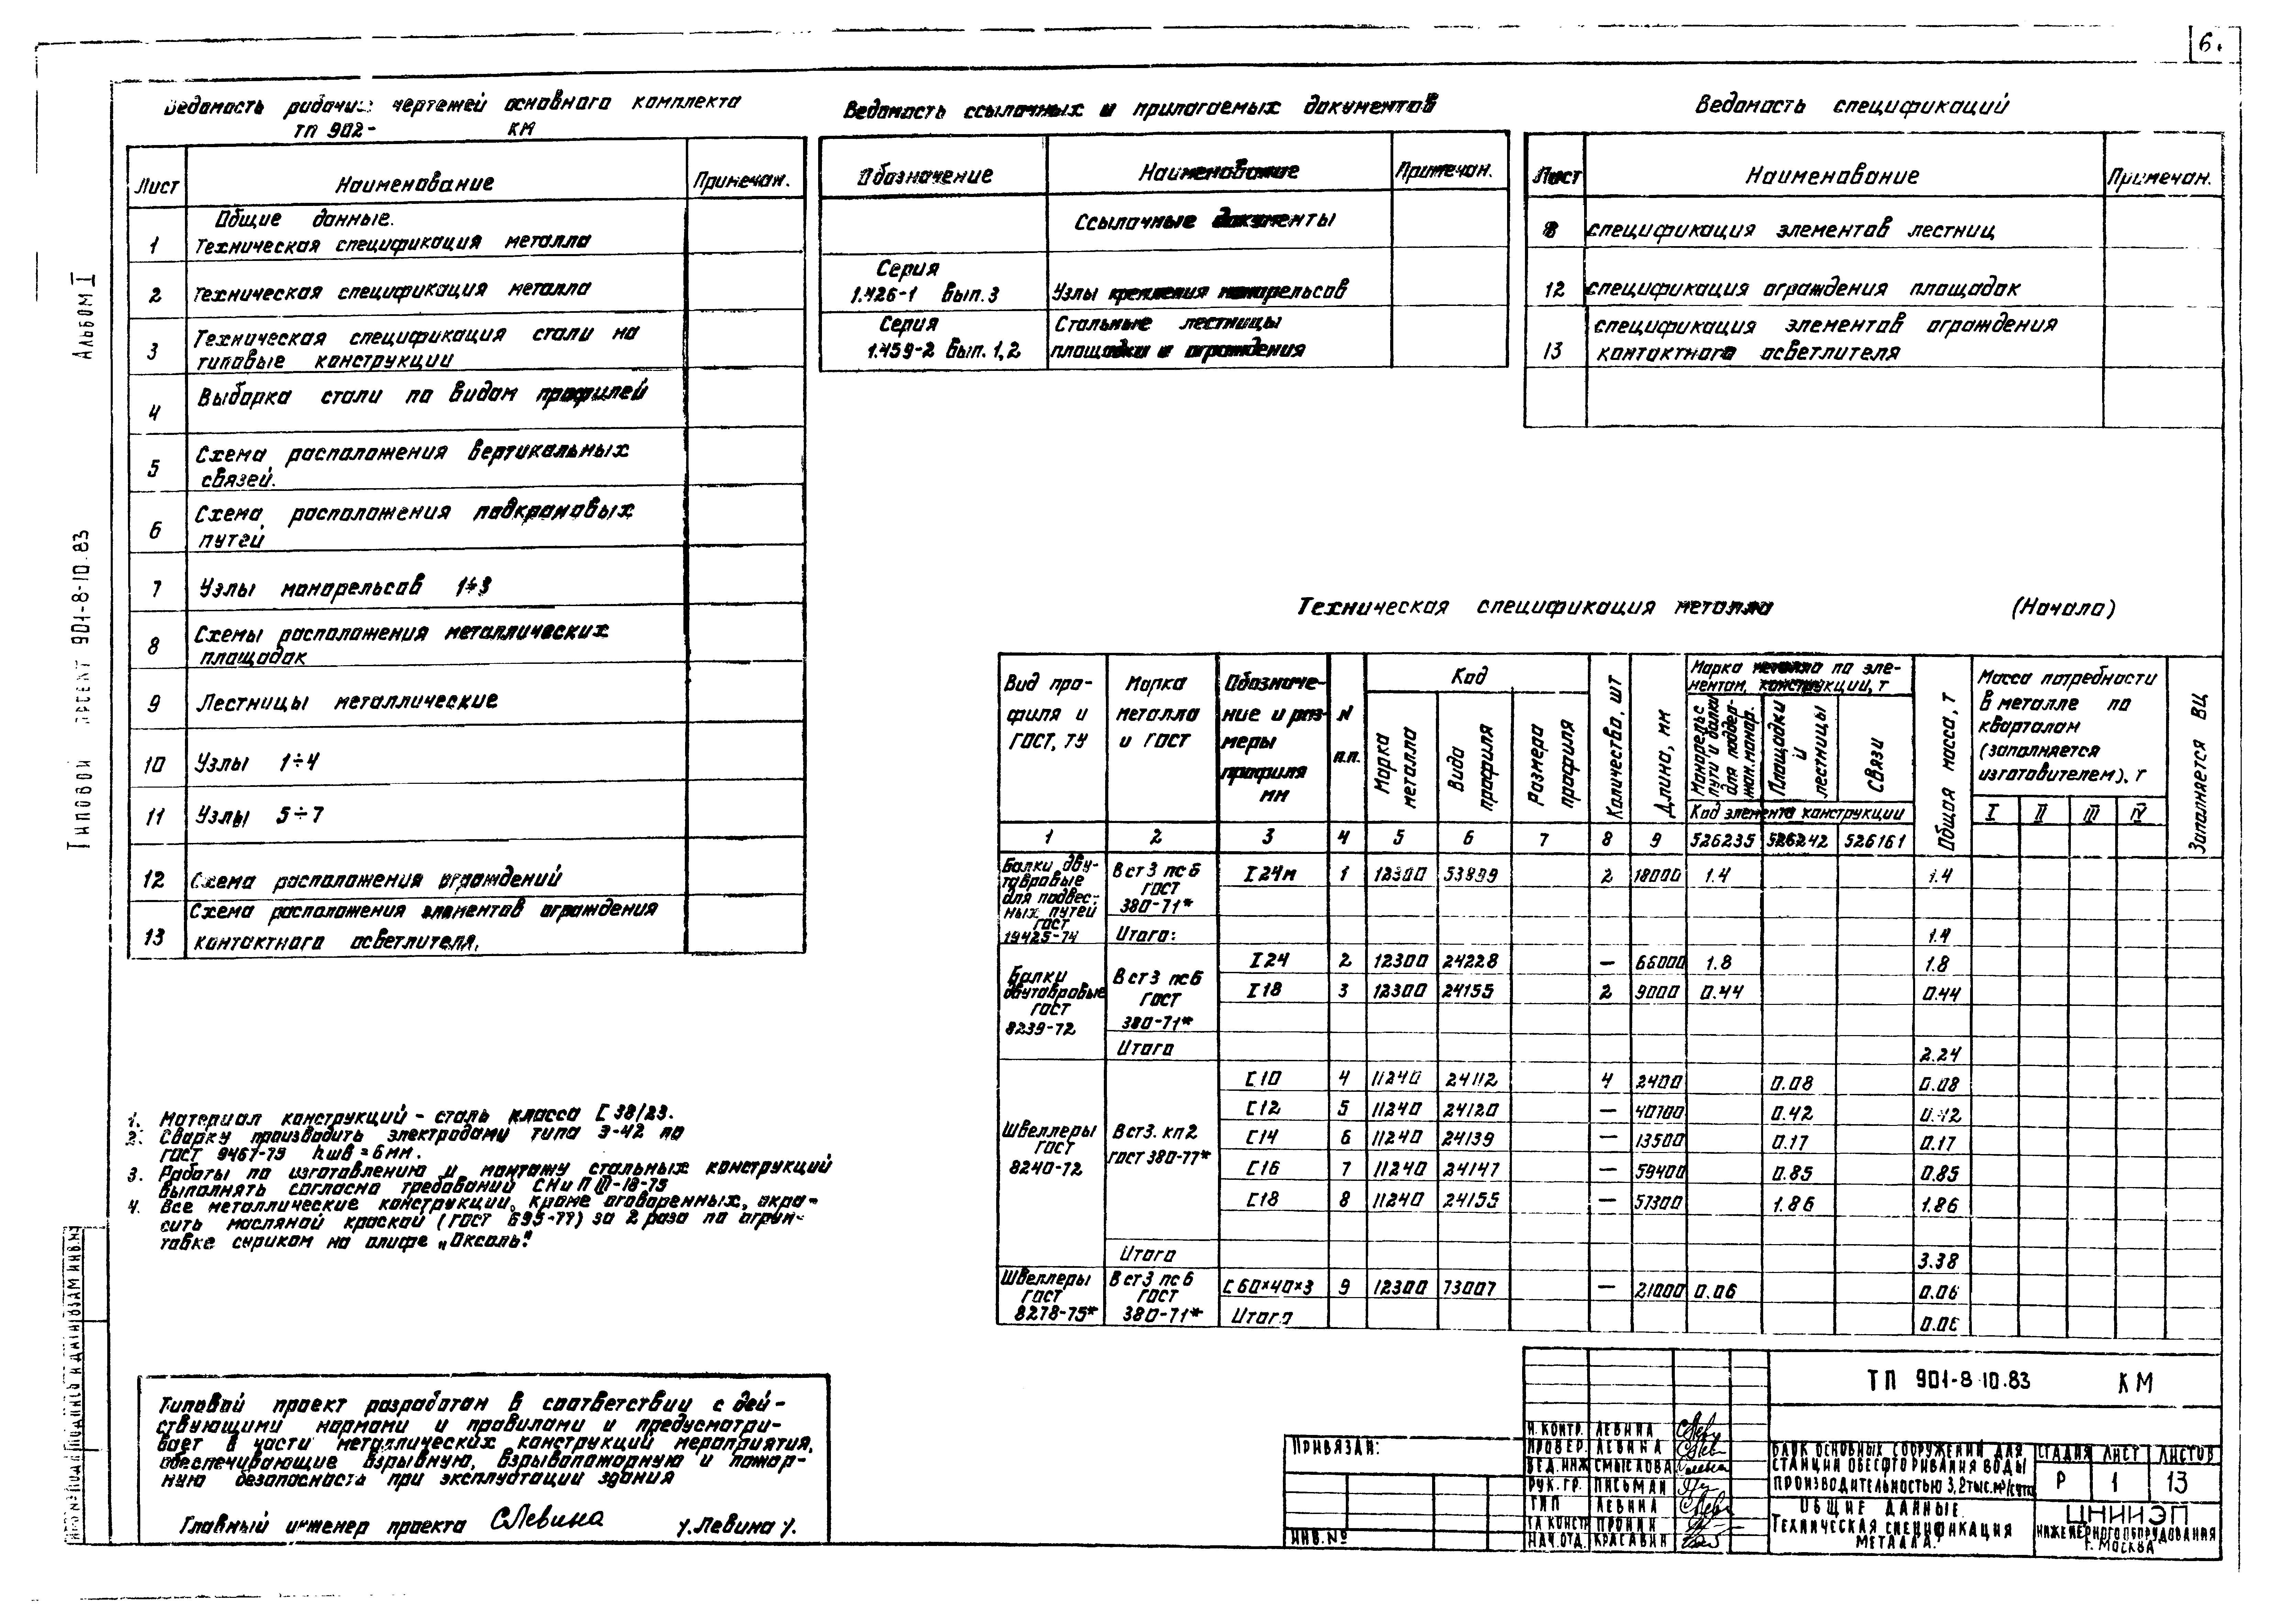 6.
Альбом I
Типовой проект 901-8-10.83
Ведомость рабочих чертежей основного комплекта
ТП 902- КМ
Лист Наименование Примечан.
Общие данные.
1 Техническая спецификация металла
2 Техническая спецификация металла
Техническая спецификация стали на
3 типовые конструкции
4 Выборка стали по видам профилей
5 Схема расположения вертикальных
связей.
6 Схема расположения подкрановых
путей
7 Узлы монорельсов 1÷3
8 Схемы расположения металлических
площадок
9 Лестницы металлические
10 Узлы 1÷4
11 Узлы 5÷7
12 Схема расположения ограждений
Схема расположения элементов ограждения
13 контактного осветлителя.
Ведомость ссылочных и прилагаемых документов
Обозначение Наименование Примечан.
Ссылочные документы
Серия
1.426-1 Вып.3 Узлы крепления монорельсов
Серия Стальные лестницы
1.459-2 Вып.1,2 площадки и ограждения
Ведомость спецификаций
Лист Наименование Примечан.
8 спецификация элементов лестниц
12 спецификация ограждения площадок
спецификация элементов ограждения
13 контактного осветлителя
Техническая спецификация металла (Начало)
Вид про-
филя и
ГОСТ, ТУ
Марка
металла
и ГОСТ
Обозначе-
ние и раз-
меры
профиля
мм
N
п.п.
Код
Марка металла
Вида профиля
Размера профиля
Количество, шт
Длина, мм
Марка металла по эле-
ментам, конструкции, т
Монорельс
пути и балки
для поддер-
жан. монор.
Площадки
и
лестницы
Связи
Код элемента конструкции
Общая масса, т
Масса потребности
в металле по
кварталам
(заполняется
изготовителем), т
I II III IV
Заполняется ВЦ
1 2 3 4 5 6 7 8 9 526235 526242 526161
Балки дву-
тавровые
для подвес-
ных путей
ГОСТ
19425-74
Вст3 пс6
ГОСТ
380-71*
I24м 1 12300 53899 2 18000 1.4 1.4
Итого: 1.4
Балки
двутавровые
ГОСТ
8239-72
Вст3 пс6
ГОСТ
380-71*
I24 2 12300 24228 — 66000 1.8 1.8
I18 3 12300 24155 2 9000 0.44 0.44
Итого 2.24
Швеллеры
ГОСТ
8240-72
Вст3. кп2
ГОСТ 380-77*
[10 4 11240 24112 4 2400 0.08 0.08
[12 5 11240 24120 — 40700 0.42 0.42
[14 6 11240 24139 — 13500 0.17 0.17
[16 7 11240 24147 — 59400 0.85 0.85
[18 8 11240 24155 — 57300 1.86 1.86
Итого 3.38
Швеллеры
ГОСТ
8278-75*
Вст3 пс6
ГОСТ
380-71*
[60×40×3 9 12300 73007 — 21000 0.06 0.06
Итого 0.06
1. Материал конструкций - сталь класса С 38/23.
2. Сварку производить электродами типа Э-42 по
ГОСТ 9467-75 hшв = 6мм.
3. Работы по изготовлению и монтажу стальных конструкций
выполнять согласно требований СНиП III-18-75
4. Все металлические конструкции, кроме оговоренных, окра-
сить масляной краской (ГОСТ 695-77) за 2 раза по огрун-
товке суриком на олифе „Оксоль".
Типовой проект разработан в соответствии с дей-
ствующими нормами и правилами и предусматри-
вает в части металлических конструкций мероприятия,
обеспечивающие взрывную, взрывопожарную и пожар-
ную безопасность при эксплуатации здания
Главный инженер проекта СЛевина /.Левина/.
Привязан:
ИНВ.№
ТП 901-8-10.83 КМ
Н.КОНТР. ЛЕВИНА
ПРОВЕР. ЛЕВИНА
ВЕД.ИНЖ СМЫСЛОВА
РУК.ГР. ПИСЬМАН
ГИП ЛЕВИНА
ГЛ.КОНСТР ПРОНИН
НАЧ.ОТД. КРАСАВИН
БЛОК ОСНОВНЫХ СООРУЖЕНИЙ ДЛЯ
СТАНЦИИ ОБЕСФТОРИВАНИЯ ВОДЫ
ПРОИЗВОДИТЕЛЬНОСТЬЮ 3,2 ТЫС.М³/СУТКИ
СТАДИЯ ЛИСТ ЛИСТОВ
Р 1 13
ОБЩИЕ ДАННЫЕ.
ТЕХНИЧЕСКАЯ СПЕЦИФИКАЦИЯ
МЕТАЛЛА.
ЦНИИЭП
ИНЖЕНЕРНОГО ОБОРУДОВАНИЯ
Г. МОСКВА